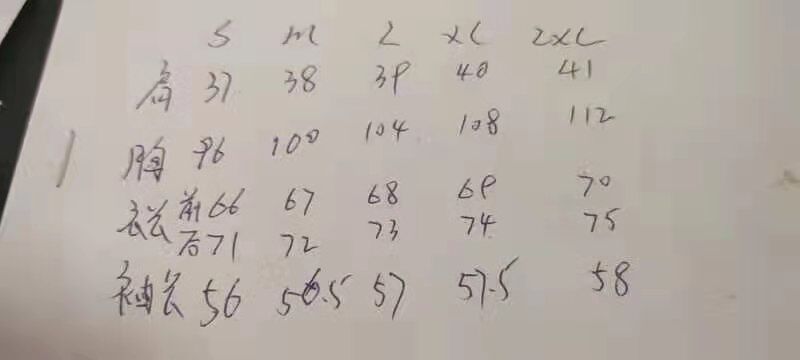 S M L XL 2XL
肩 37 38 39 40 41
胸 96 100 104 108 112
衣长 前66 67 68 69 70
后71 72 73 74 75
袖长 56 56.5 57 57.5 58